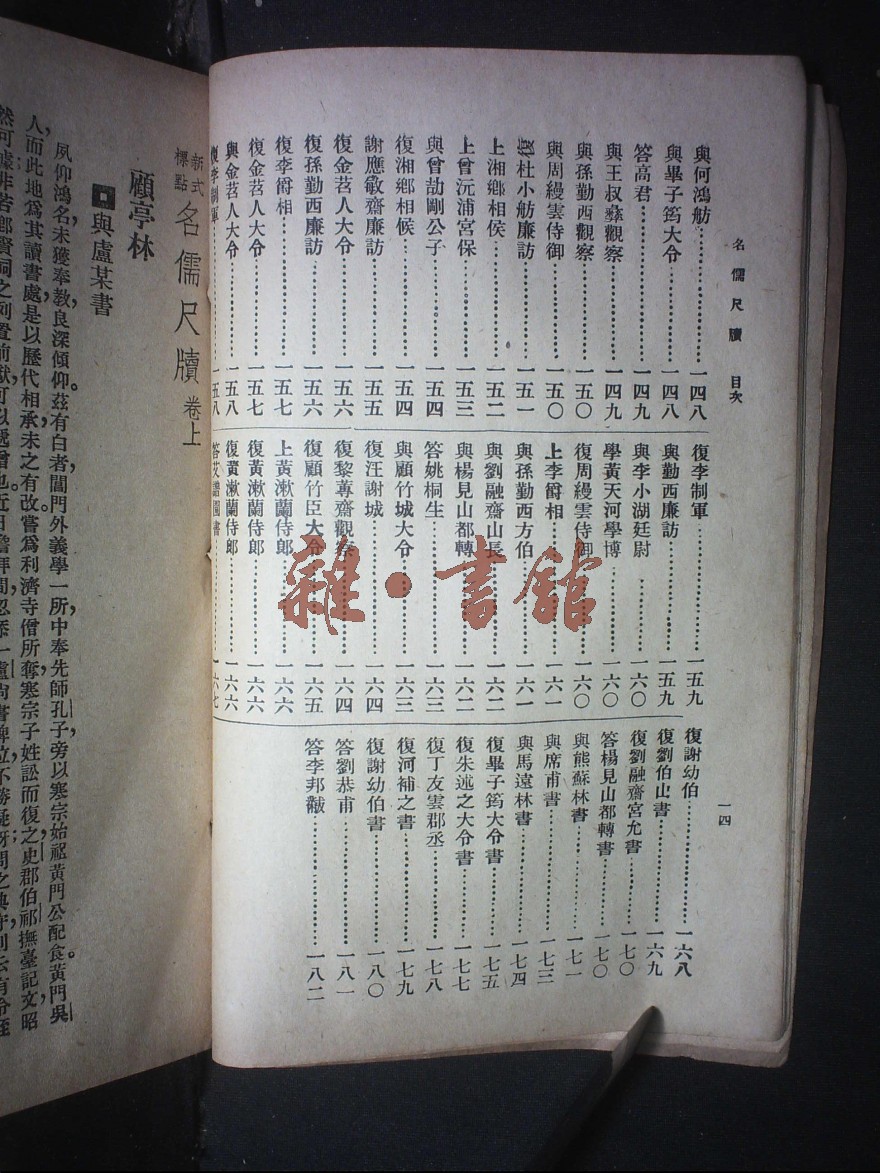 名儒尺牘　目次
一四
與何鴻舫……一四八
與畢子筠大令……一四八
答高君……一四九
與王叔彝觀察……一四九
與孫勤西觀察……一五〇
與周縵雲侍御……一五〇
復杜小舫廉訪……一五一
上湘鄉相侯……一五二
上曾沅浦宮保……一五三
與曾劼剛公子……一五四
復湘鄉相侯……一五四
謝應敏齋廉訪……一五五
復金苕人大令……一五六
復孫勤西廉訪……一五六
復李爵相……一五七
復金苕人大令……一五七
與金苕人大令……一五八
復李制軍……一五八
復李制軍……一五九
與勤西廉訪……一五九
與李小湖廷尉……一六〇
學黃天河學博……一六〇
復周縵雲侍御……一六〇
上李爵相……一六一
與孫勤西方伯……一六一
與劉融齋山長……一六二
與楊見山都轉……一六二
答姚桐生……一六三
與顧竹城大令……一六三
復汪謝城……一六四
復黎蓴齋觀察……一六四
復顧竹臣大令……一六五
上黃漱蘭侍郎……一六六
復黃漱蘭侍郎……一六六
復黃漱蘭侍郎……一六六
答艾譜園書……一六七
復謝幼伯……一六八
復劉伯山書……一六九
復劉融齋宮允書……一七〇
答楊見山都轉書……一七〇
與熊蘇林書……一七一
與席甫書……一七三
與馬遠林書……一七四
復畢子筠大令書……一七五
復朱述之大令書……一七七
復丁友雲郡丞……一七八
復河補之書……一七九
復謝幼伯書……一八〇
答劉恭甫……一八一
答李邦黻……一八二
雜·書館
新式標點　名儒尺牘　卷上
顧亭林
與盧某書
夙仰鴻名，未獲奉教，良深傾仰。茲有白者，閶門外義學一所，中奉先師孔子，旁以寒宗始祖黃門公配食。黃門吳
人，而此地爲其讀書處，是以歷代相承，未之有改。嘗爲利濟寺僧所奪，寒宗子姓訟而復之。史郡伯祁撫臺記文昭